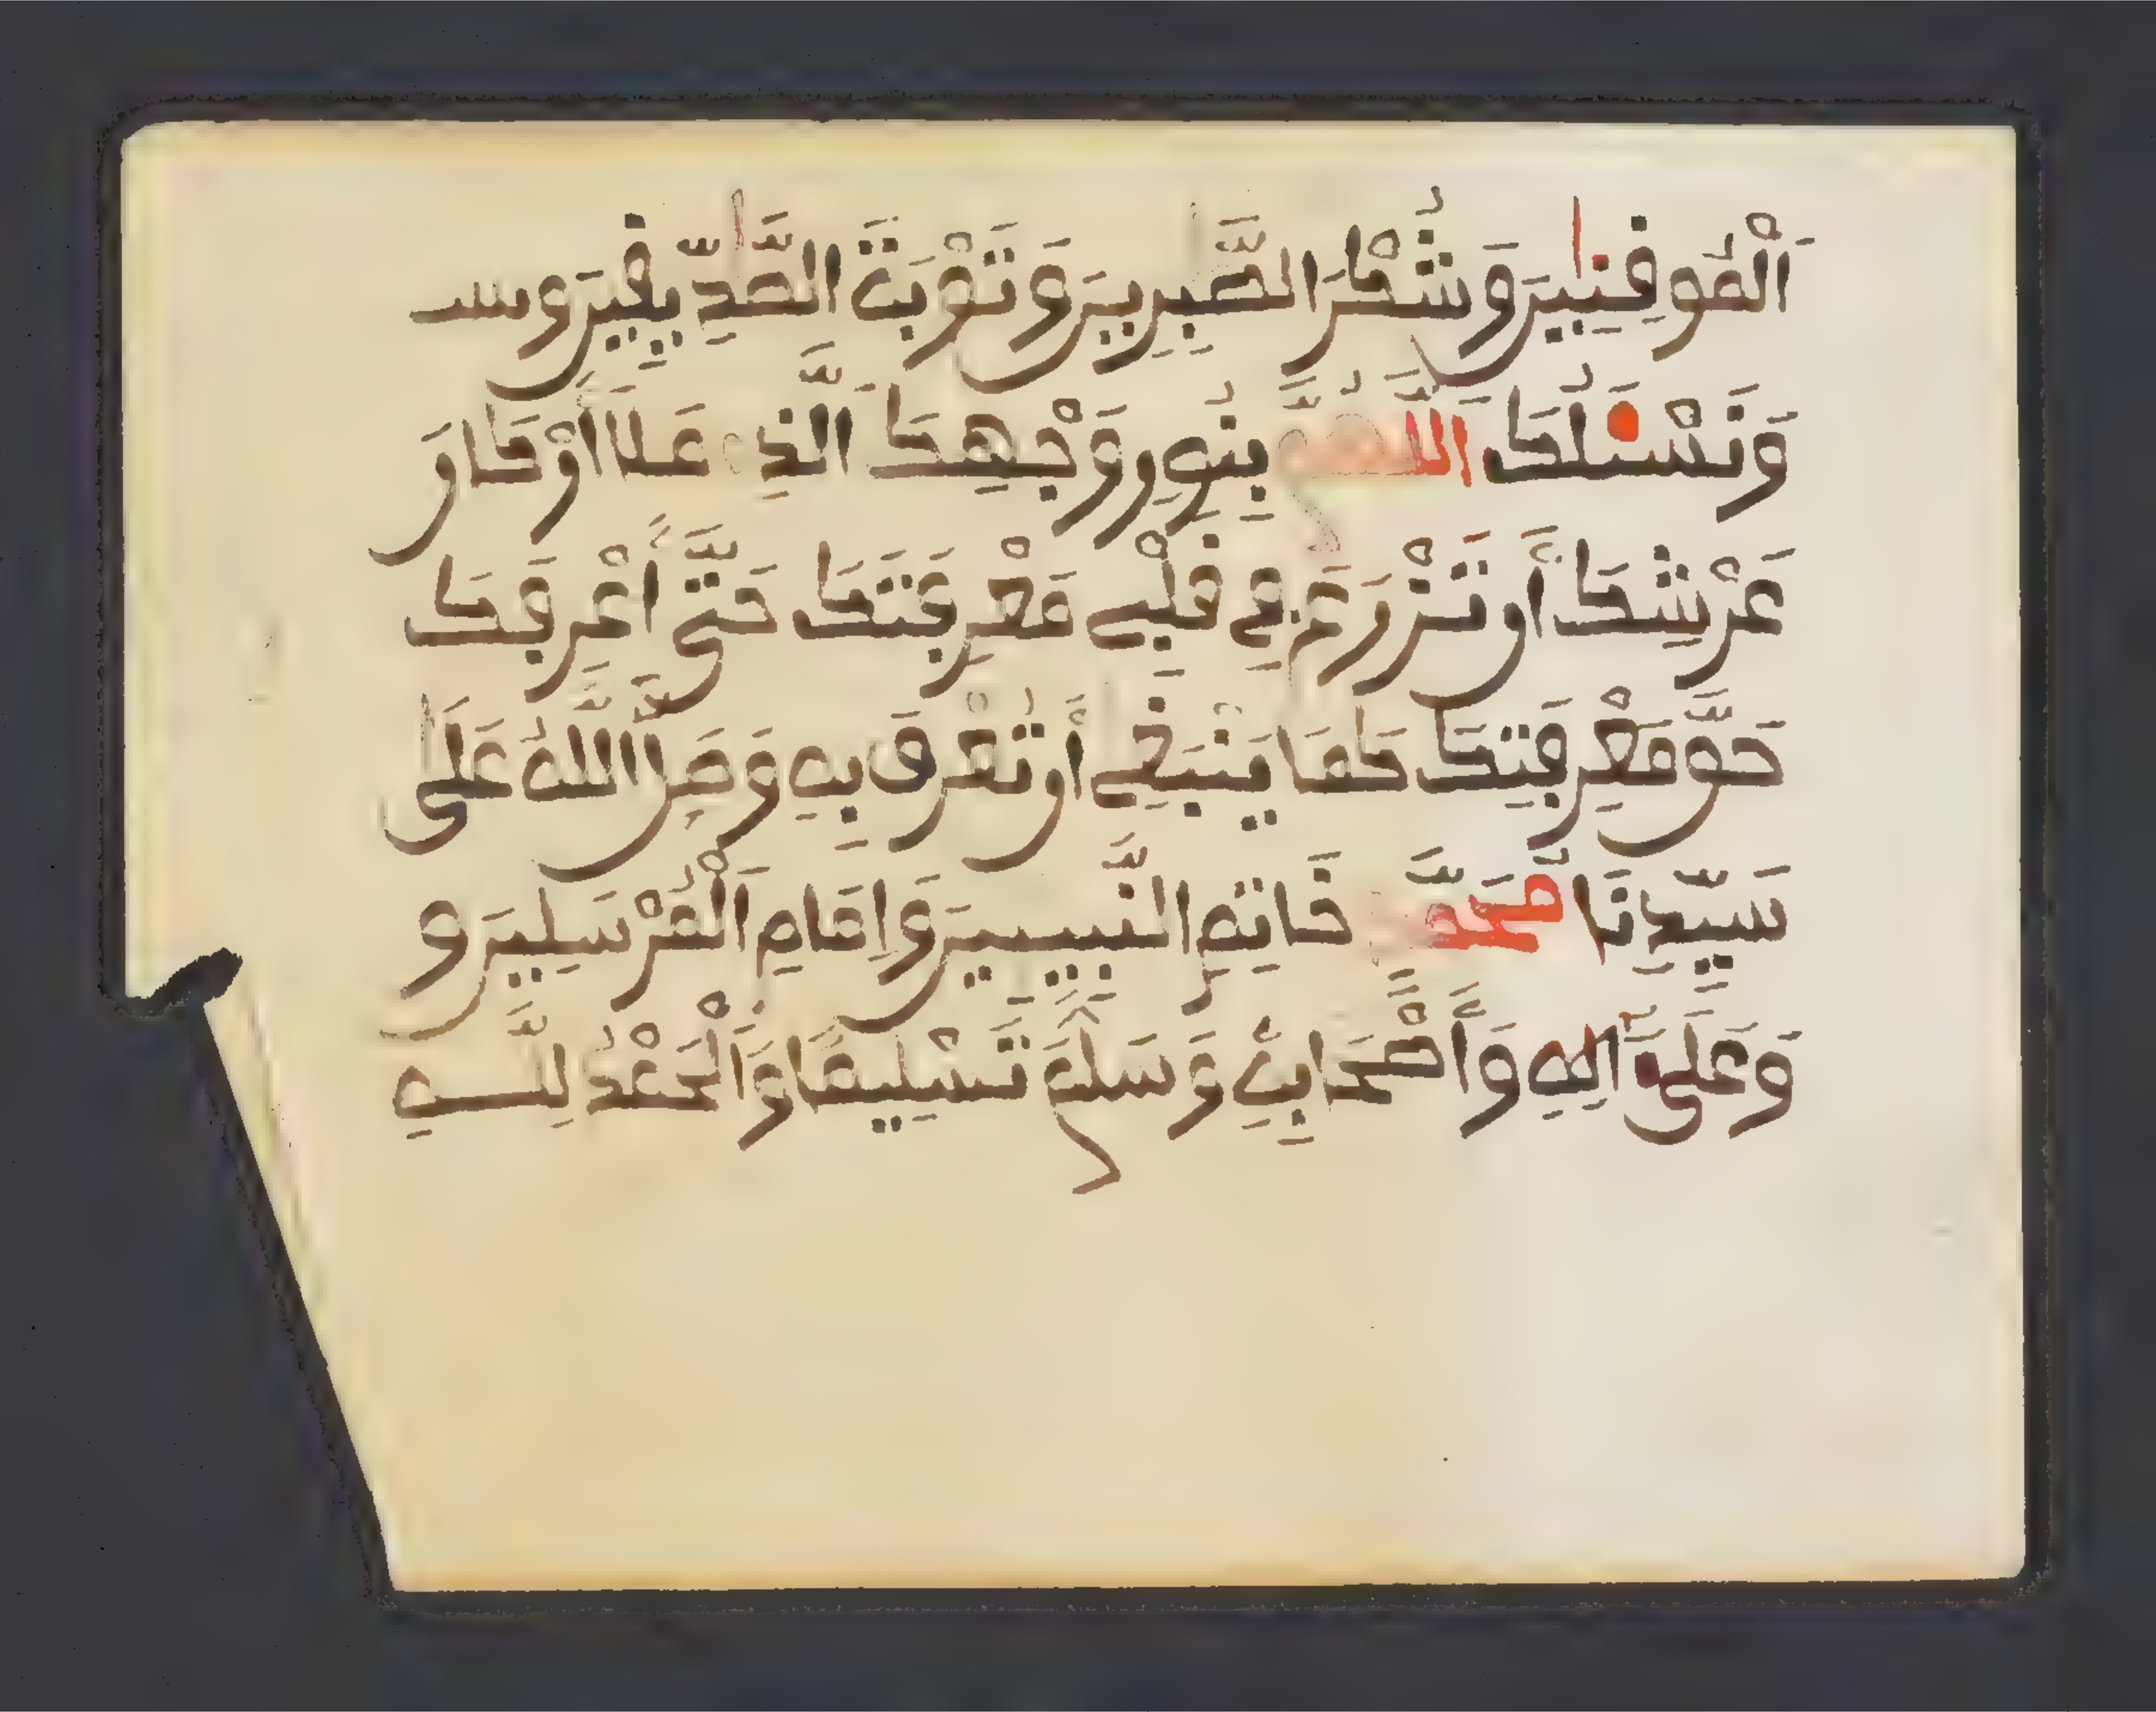 اَلْمُوفِنِينَ وَشُكْرَ الصَّبِرِينَ وَتَوْبَةَ الصِّدِّيفِينَ وسـ
وَنَسْـَٔلُكَ اَللَّهُمَّ بِنُورِ وَجْهِكَ الَّذِے مَلَأَ أَرْكَانَ
عَرْشِكَ أَن تَزْرَعَ فِے فَلْبِے مَعْرِفَتَكَ حَتَّى أَعْرِفَكَ
حَقَّ مَعْرِفَتِكَ كَمَا يَنْبَغِے أَن تُعْرَفَ بِهِ وَصَلَّ اللَّهُ عَلَى
سَيِّدِنَا مُحَمَّدٍ خَاتِمِ النَّبِيِينَ وَإِمَامِ اَلْمُرْسَلِينَ وَ
وَعَلَىٰ آلِهِ وَأَصْحَابِهِ وَسَلَّمَ تَسْلِيمًا وَاَلْحَمْدُ لِلَّـهِ